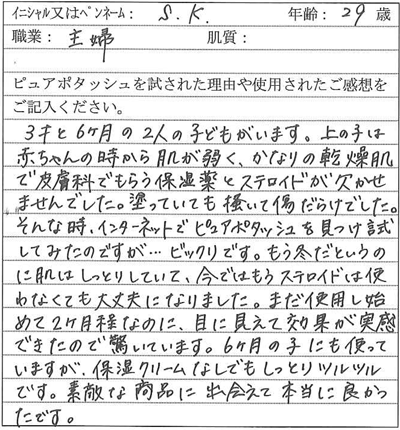 イニシャル又はペンネーム： S.K. 年齢：29 歳
職業：主婦 肌質：
ピュアポタッシュを試された理由や使用されたご感想を
ご記入ください。
3才と6ヶ月の2人の子どもがいます。上の子は
赤ちゃんの時から肌が弱く、かなりの乾燥肌
で皮膚科でもらう保湿薬とステロイドが欠かせ
ませんでした。塗っていても掻いて傷だらけでした。
そんな時、インターネットでピュアポタッシュを見つけ試
してみたのですが…ビックリです。もう冬だというの
に肌はしっとりしていて、今ではもうステロイドは使
わなくても大丈夫になりました。まだ使用し始
めて2ヶ月程なのに、目に見えて効果が実感
できたので驚いています。6ヶ月の子にも使って
いますが、保湿クリームなしでもしっとりツルツル
です。素敵な商品に出会えて本当に良かっ
たです。